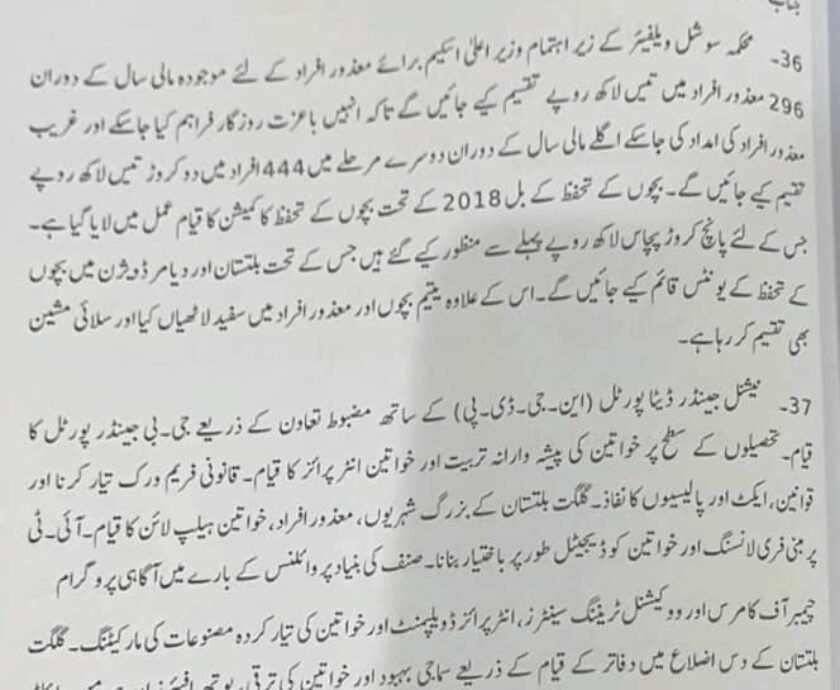 جناب
36- محکمہ سوشل ویلفیئر کے زیر اہتمام وزیر اعلیٰ اسکیم برائے معذور افراد کے لئے موجودہ مالی سال کے دوران
296 معذور افراد میں تیس لاکھ روپے تقسیم کیے جائیں گے تاکہ انہیں باعزت روزگار فراہم کیا جاسکے اور غریب
معذور افراد کی امداد کی جاسکے اگلے مالی سال کے دوران دوسرے مرحلے میں 444 افراد میں دو کروڑ تیس لاکھ روپے
تقسیم کیے جائیں گے۔ بچوں کے تحفظ کے بل 2018 کے تحت بچوں کے تحفظ کا کمیشن کا قیام عمل میں لایا گیا ہے۔
جس کے لئے پانچ کروڑ پچاس لاکھ روپے پہلے سے منظور کیے گئے ہیں جس کے تحت بلتستان اور دیامر ڈویژن میں بچوں
کے تحفظ کے یونٹس قائم کیے جائیں گے۔ اس کے علاوہ یتیم بچوں اور معذور افراد میں سفید لاٹھیاں کیا اور سلائی مشین
بھی تقسیم کر رہا ہے۔
37- نیشنل جینڈر ڈیٹا پورٹل (این۔جی۔ڈی۔پی) کے ساتھ مضبوط تعاون کے ذریعے جی۔بی جینڈر پورٹل کا
قیام۔ تحصیلوں کے سطح پر خواتین کی پیشہ وارانہ تربیت اور خواتین انٹرپرائز کا قیام۔ قانونی فریم ورک تیار کرنا اور
قوانین، ایکٹ اور پالیسیوں کا نفاذ۔ گلگت بلتستان کے بزرگ شہریوں، معذور افراد، خواتین ہیلپ لائن کا قیام۔ آئی۔ٹی
پر مبنی فری لانسنگ اور خواتین کو ڈیجیٹل طور پر باختیار بنانا۔ صنف کی بنیاد پر وائلنس کے بارے میں آگاہی پروگرام
چیمبر آف کامرس اور ووکیشنل ٹریننگ سینٹرز، انٹرپرائز ڈویلپمنٹ اور خواتین کی تیار کردہ مصنوعات کی مارکیٹنگ۔ گلگت
بلتستان کے دس اضلاع میں دفاتر کے قیام کے ذریعے سماجی بہبود اور خواتین کی ترقی،